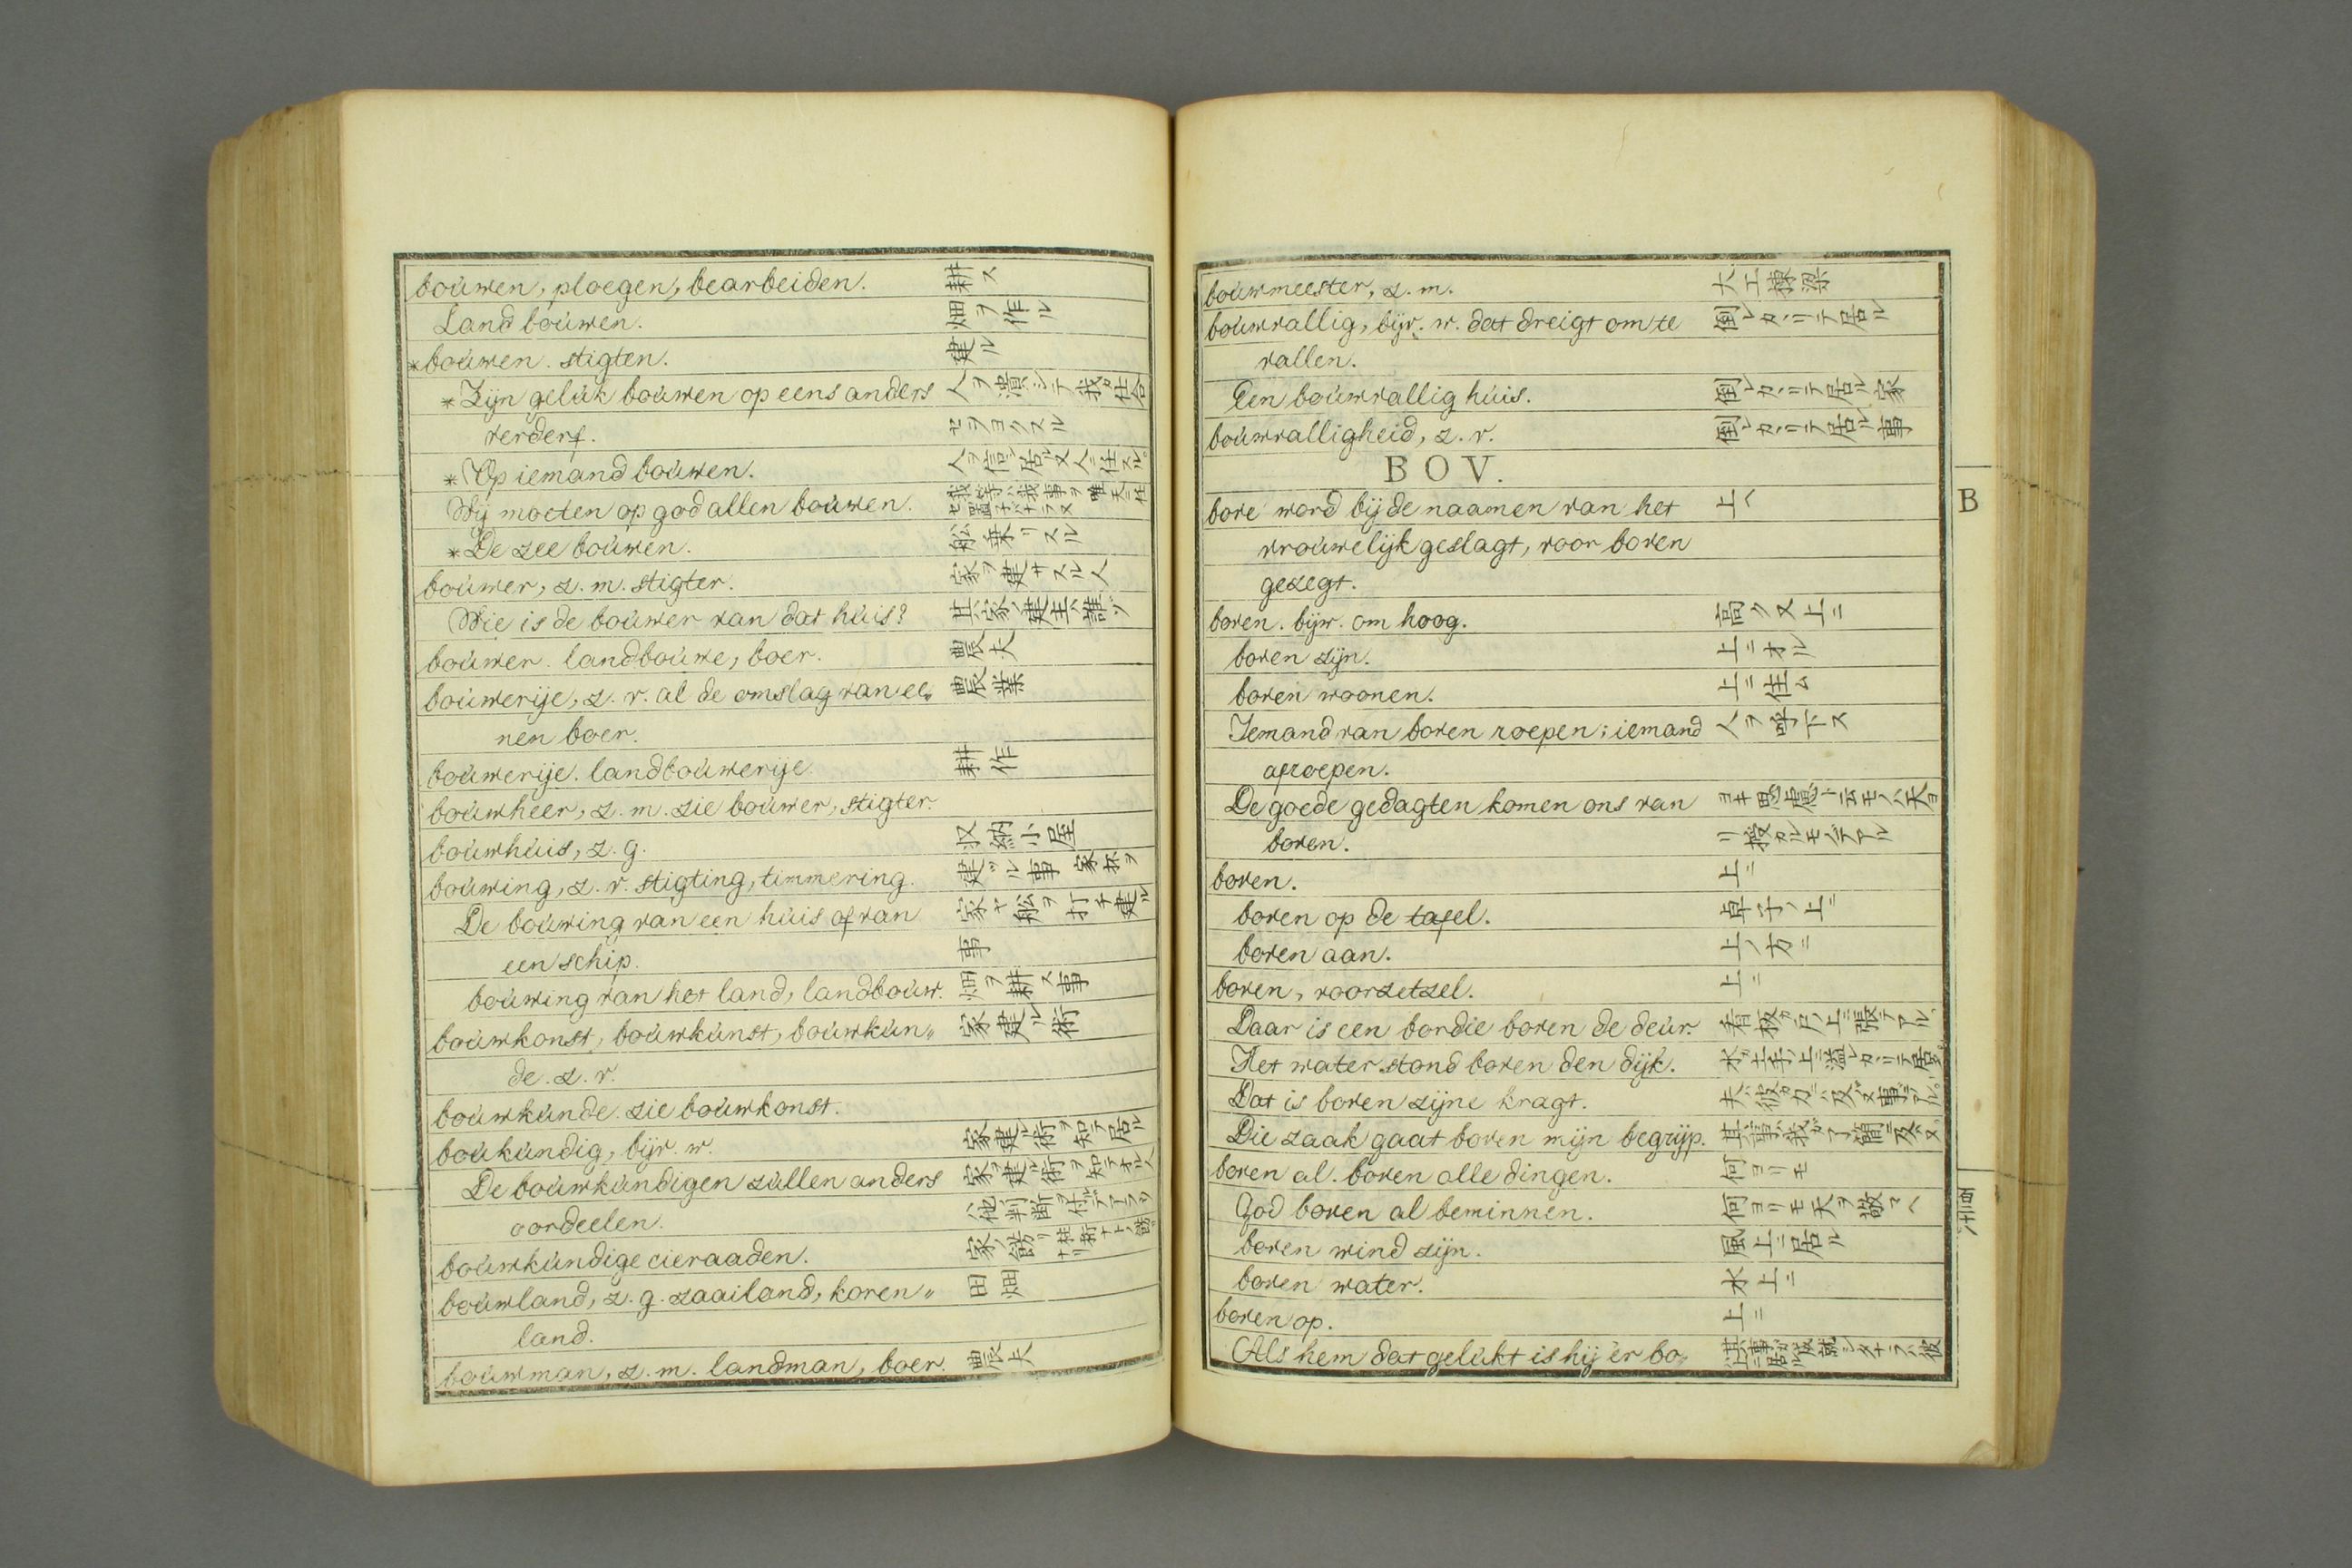 boúwen, ploegen, bearbeiden. 耕ス
Land boúwen. 畑ヲ作ル
*boúwen. stigten. 建ル
*Zijn gelúk boúwen op eens anders 人ヲ潰シテ我仕合
verderf. ヲヨクスル
*Op iemand boúwen. 人ヲ信シ居ル又人ニ任スル
Wij moeten op god allen boúwen.
*De zee boúwen. 舩乗リスル
boúwer, z. m. stigter. 家ヲ建サスル人
Wie is de boúwer van dat húis? 其家ノ建主ハ誰ゾ
boúwer. landboúwe, boer. 農夫
boúwerije, z. v. al de omslag van ee„ 農業
nen boer.
boúwerije. landboúwerije 耕作
boúwheer, z. m. zie boúwer, stigter.
boúwhúis, z. g. 収納小屋
boúwing, z. v. stigting, timmering. 建ツル事 家杯ヲ
De boúwing van een húis of van 家ヤ舩ヲ打チ建ル
een schip. 事
boúwing van het land, landboúw. 畑ヲ耕ス事
boúwkonst, boúwkúnst, boúwkún„ 家建ル術
de. z. v.
boúwkúnde. zie boúwkonst.
boúkúndig, bijv. w. 家建ル術ヲ知テ居ル
De boúwkúndigen zúllen anders 家ヲ建ル術ヲ知テオル人
oordeelen. ハ他ノ判断ヲ付ルデアラウ
boúwkúndige cieraaden. 家ノ餝リ
boúwland, z. g. zaailand, koren„ 田畑
land.
boúwman, z. m. landman, boer. 農夫
boúwmeester, z. m.大工棟梁
boúwvallig, bijv. w. dat dreigt om te 倒レカヽリテ居ル
vallen.
Een boúwvallig húis. 倒レカヽリテ居ル家
boúwvalligheid, z. v. 倒レカヽリテ居ル事
BOV.
bove word bij de naamen van het 上ヘ
vroúwelijk geslagt, voor boven
gezegt.
boven. bijw. om hoog. 高ク又上ニ
boven zijn. 上ニオル
boven woonen. 上ニ住ム
Iemand van boven roepen; iemand 人ヲ呼下ス
afroepen.
De goede gedagten komen ons van ヨキ思慮ト云モノハ天ヨ
boven. リ授カルモノデアル
boven. 上ニ
boven op de tafel. 卓子ノ上ニ
boven aan. 上ノ方ニ
boven, voorzetzel. 上ニ
Daar is een bordie boven de deúr. 看板ガ戸ノ上ニ張テアル
Het water stond boven den dijk. 水ガ土手ノ上ニ溢レカヽリテ居タ
Dat is boven zijne kragt. 夫ハ彼ガ力ニハ及バヌ事デアル
Die zaak gaat boven mijn begrijp. 其事ハ我ガ了簡ニ及バヌ
boven al. boven alle dingen. 何ヨリモ
God boven al beminnen. 何ヨリモ天ヲ敬マヘ
boven wind zijn. 風上ニ居ル
boven water. 水上ニ
boven op. 上ニ
Als hem dat gelúkt is hij er bo„
B